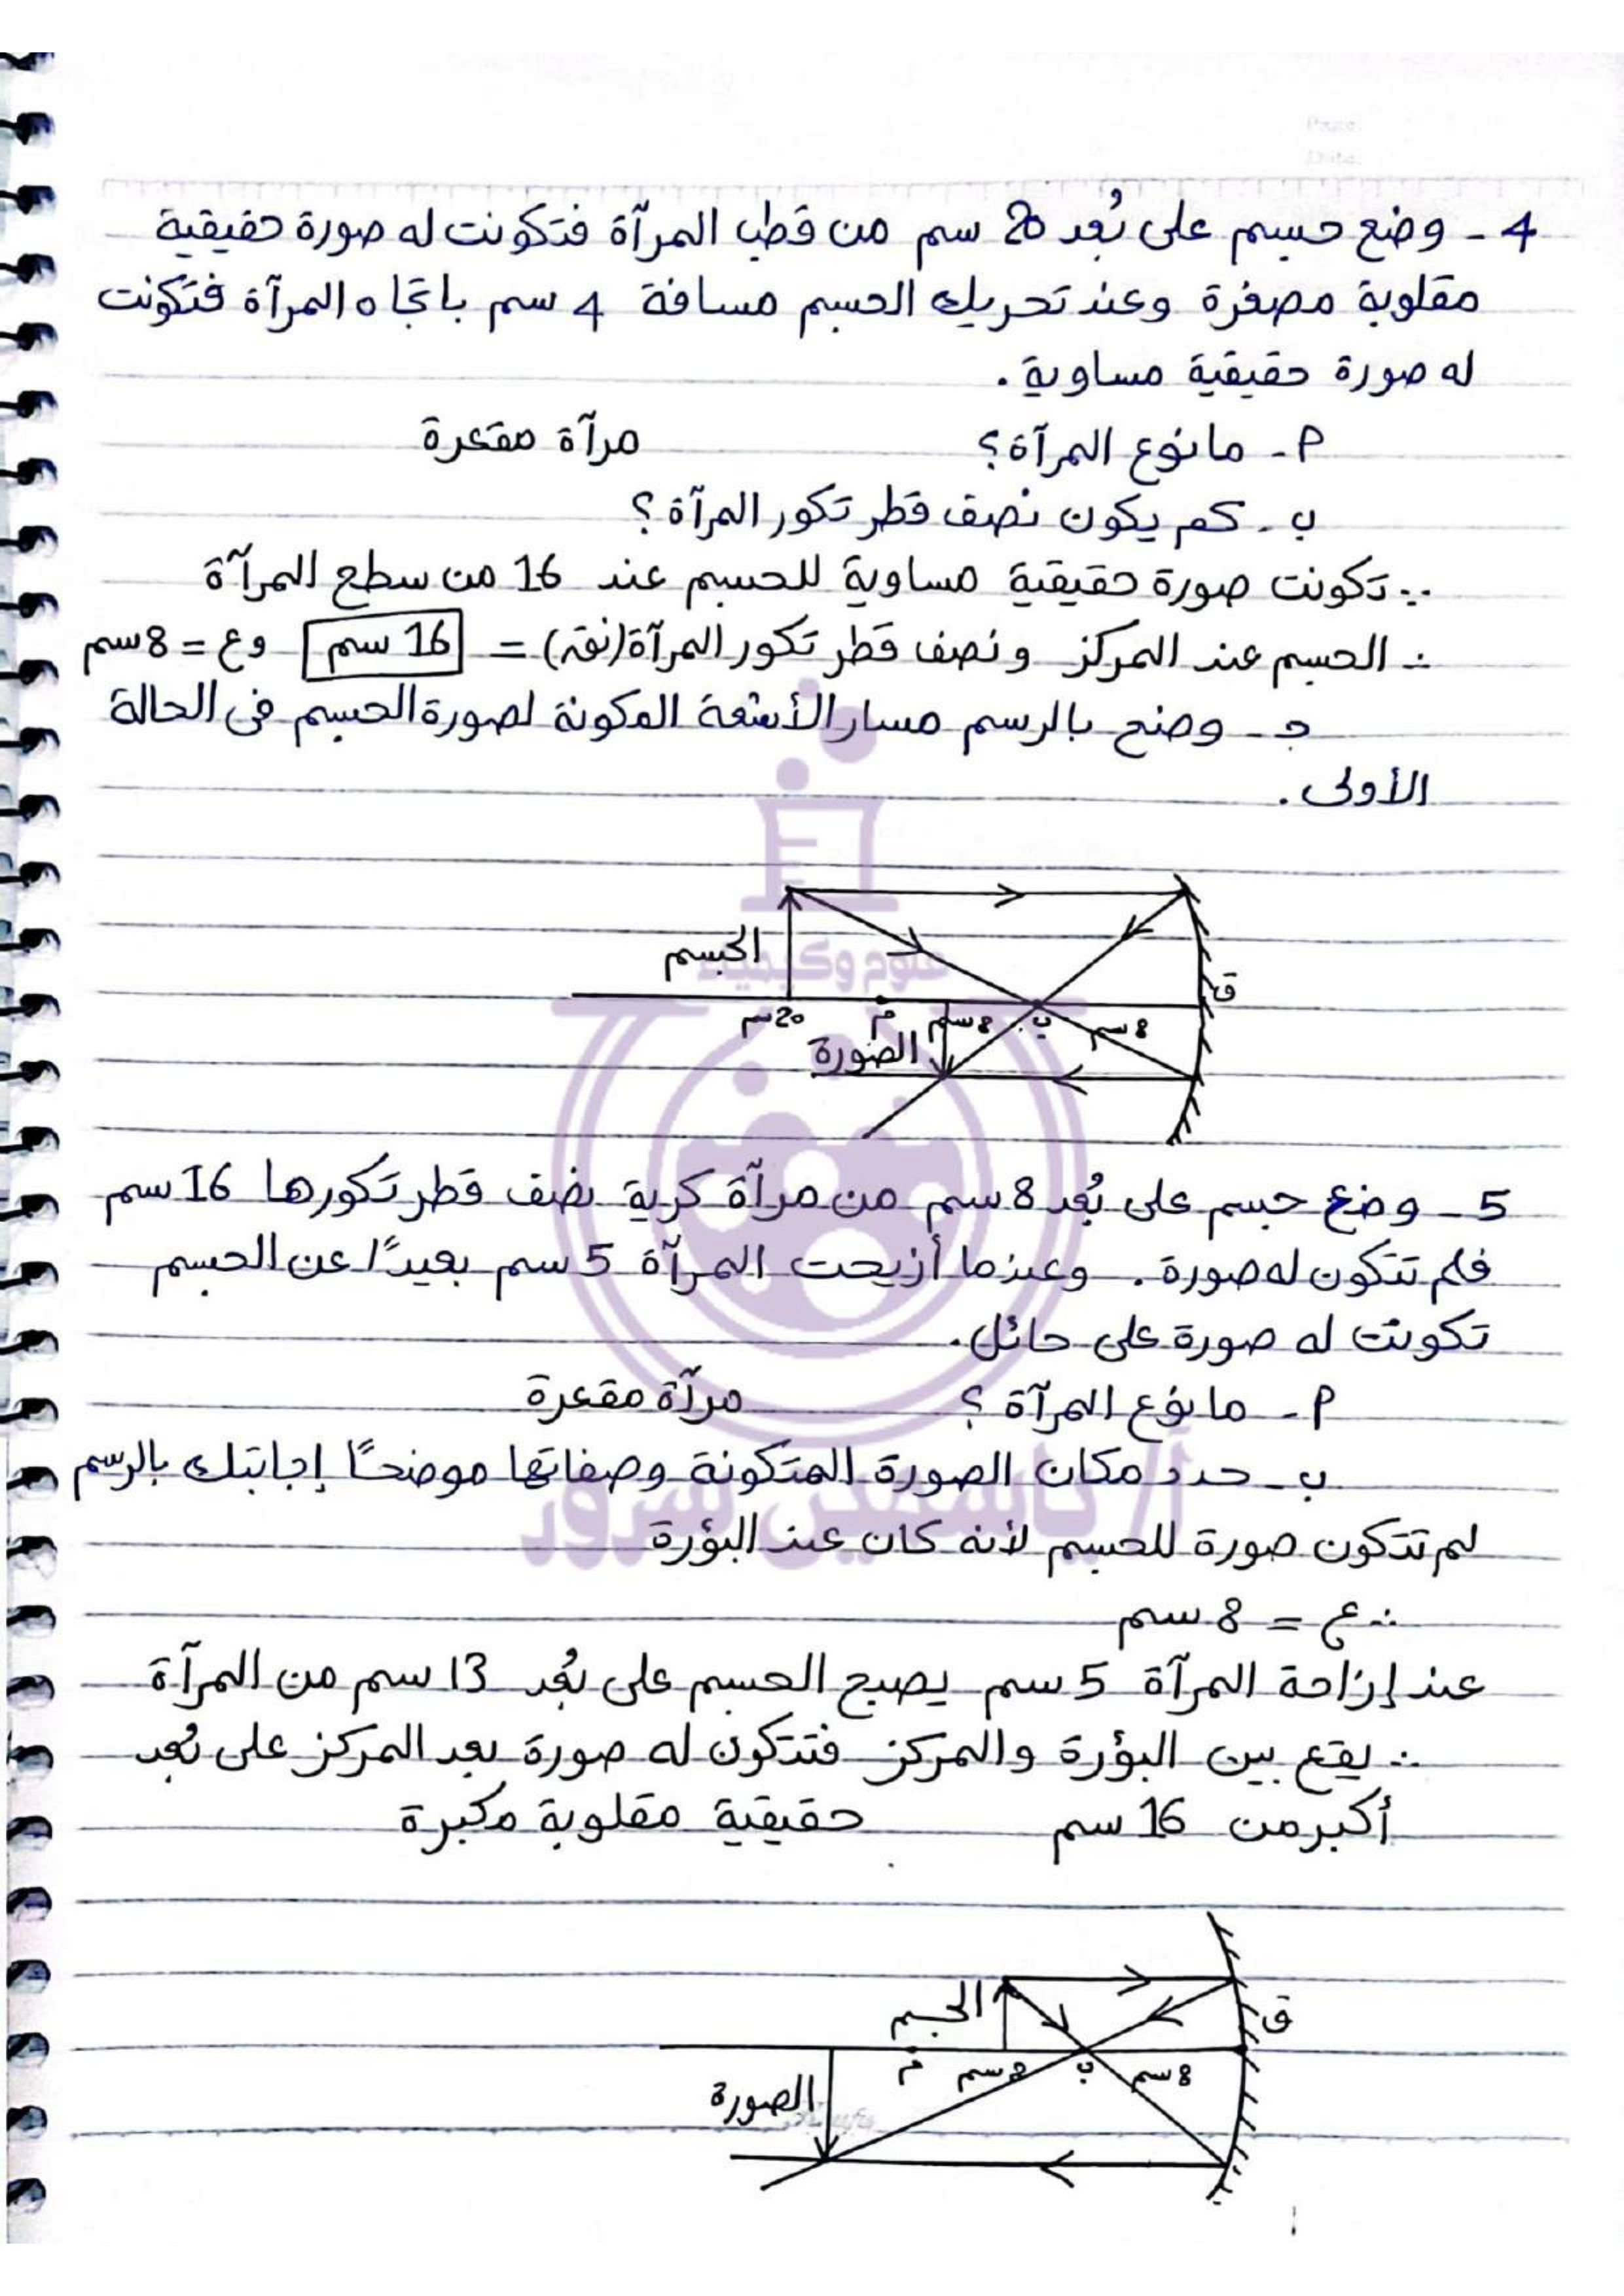 Page:
Date:
4 - وضع جسم على بُعد 20 سم من قطب المرآة فتكونت له صورة حقيقية
مقلوبة مصغرة وعند تحريك الجسم مسافة 4 سم باتجاه المرآة فتكونت
له صورة حقيقية مساوية.
أ - ما نوع المرآة؟ مرآة مقعرة
ب - كم يكون نصف قطر تكور المرآة؟
∵ تكونت صورة حقيقية مساوية للجسم عند 16 من سطح المرآة
∴ الجسم عند المركز ونصف قطر تكور المرآة (نق) = 16 سم وع = 8 سم
جـ - وضح بالرسم مسار الأشعة المكونة لصورة الجسم فى الحالة
الأولى.
الجسم
ق
20 سم م 8 سم ب 8 سم
الصورة
علوم وكيمياء
5 - وضع جسم على بُعد 8 سم من مرآة كرية نصف قطر تكورها 16 سم
فلم تتكون له صورة. وعندما أزيحت المرآة 5 سم بعيدًا عن الجسم
تكونت له صورة على حائل.
أ - ما نوع المرآة؟ مرآة مقعرة
ب - حدد مكان الصورة المتكونة وصفاتها موضحًا إجابتك بالرسم
أ/ ياسمين سرور
لم تتكون صورة للجسم لأنه كان عند البؤرة
∴ ع = 8 سم
عند إزاحة المرآة 5 سم يصبح الجسم على بُعد 13 سم من المرآة
∴ يقع بين البؤرة والمركز فتتكون له صورة بعد المركز على بُعد
أكبر من 16 سم حقيقية مقلوبة مكبرة
الجسم
ق
م 8 سم ب 8 سم
الصورة